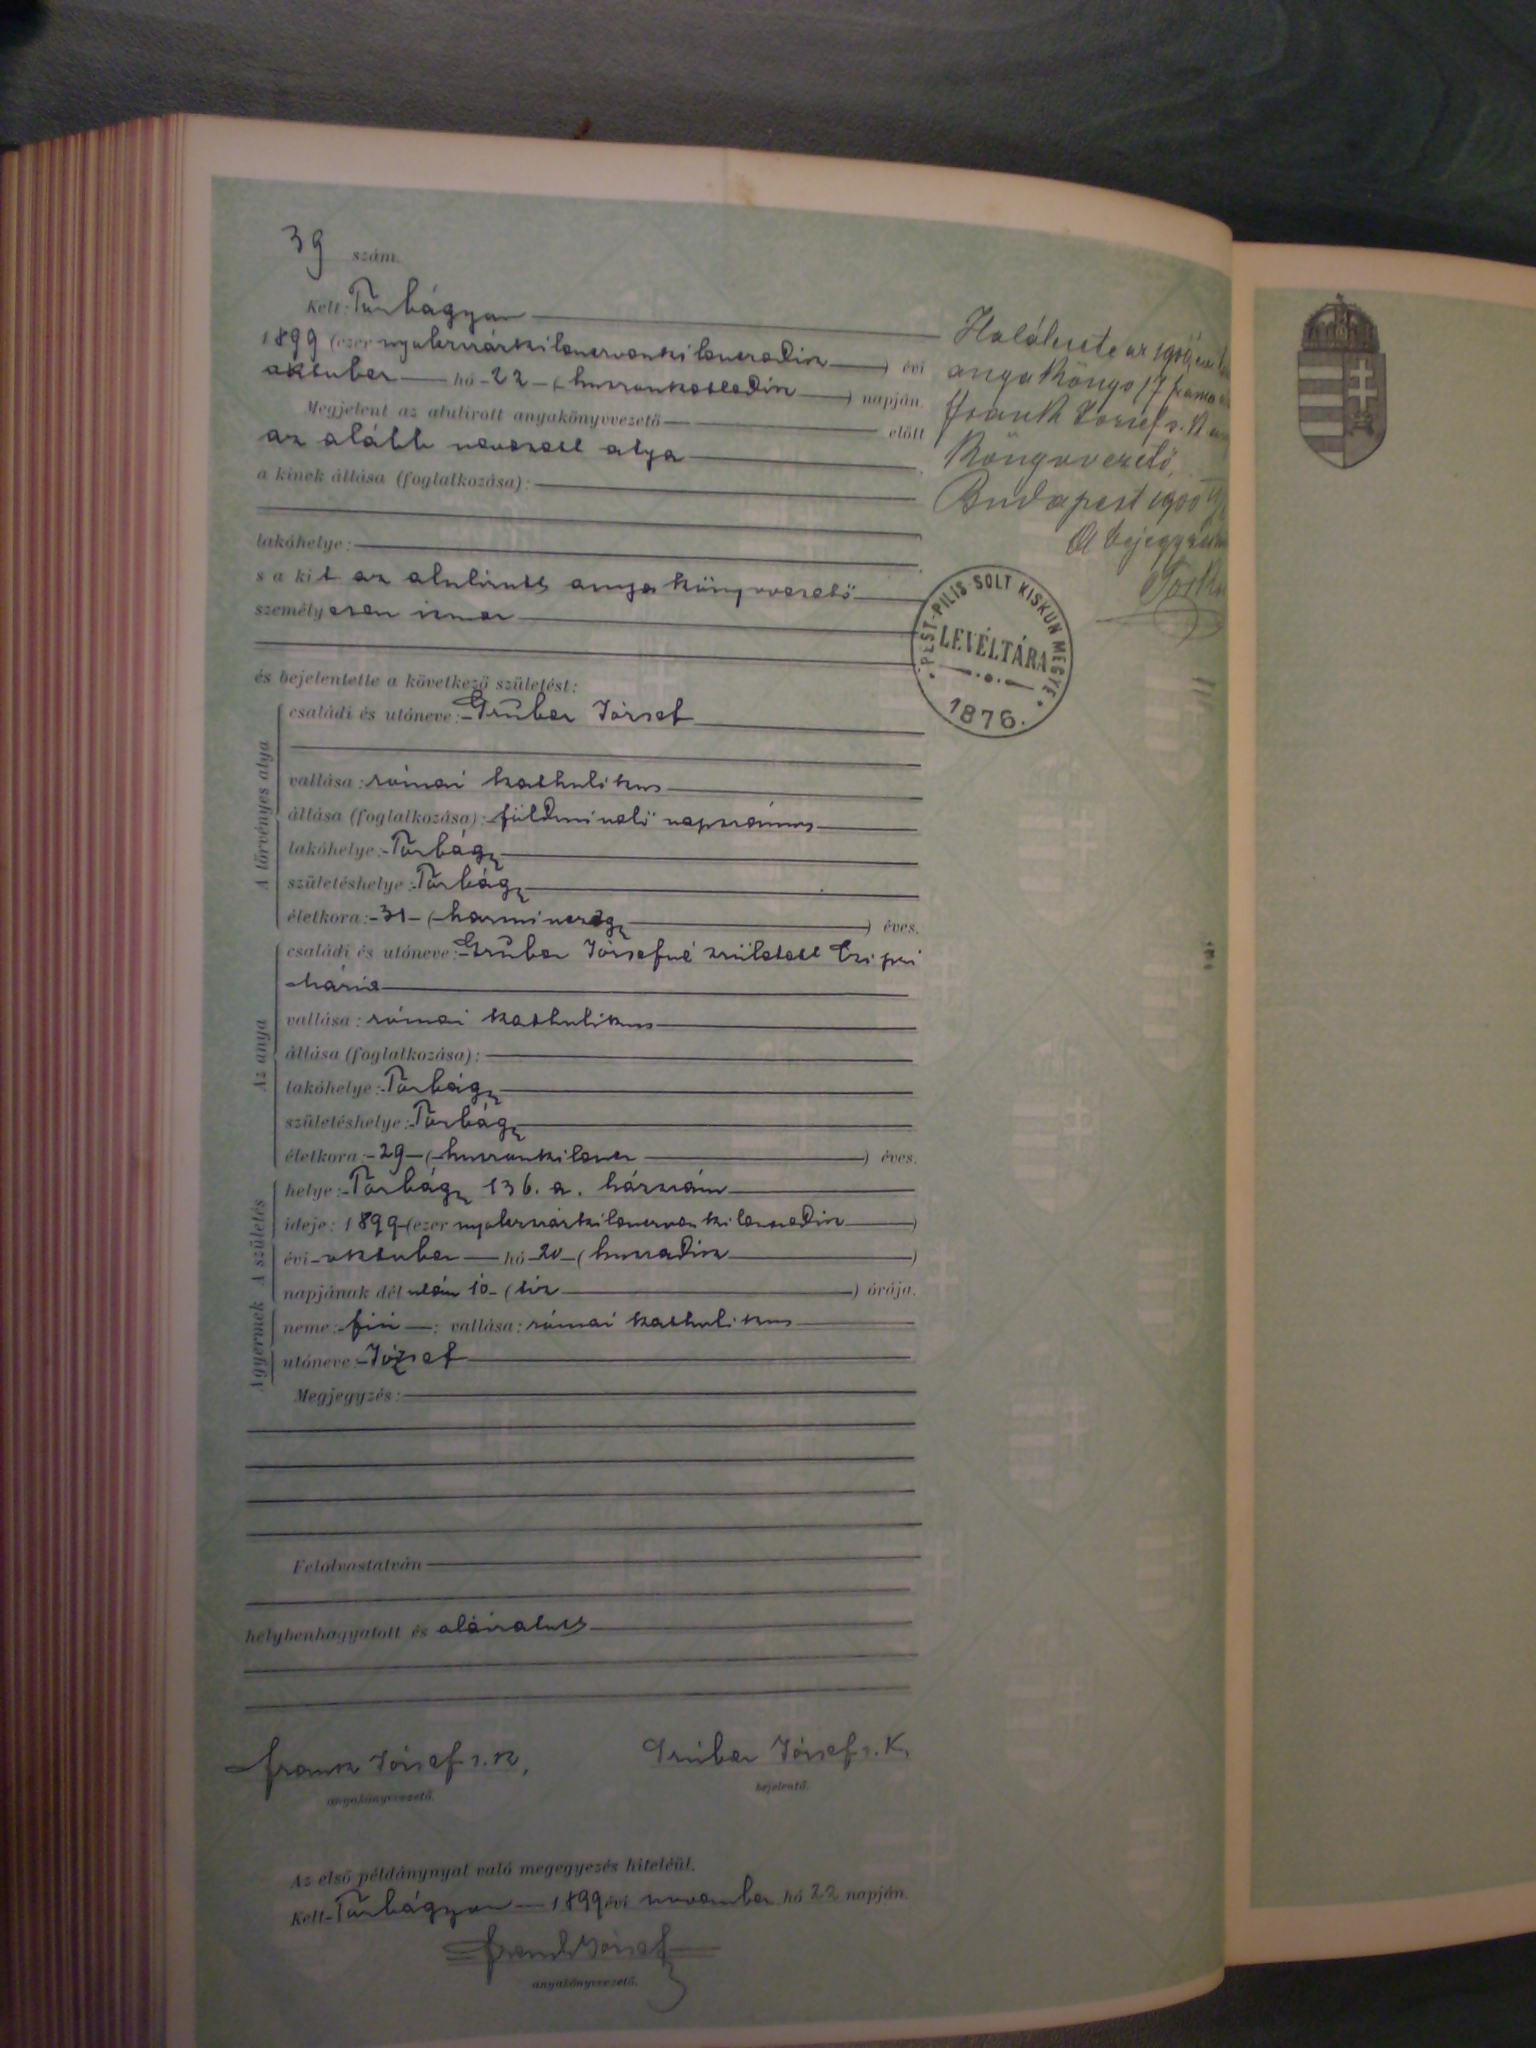 39 szám.
Kelt: Törbágyon
1899 (ezer nyolczszázkilenczvenkilenczedik) évi
október hó 22 (huszonkettedik) napján.
Megjelent az alulirott anyakönyvvezető előtt
az alább nevezett atya
a kinek állása (foglalkozása):
lakóhelye:
s a kit az alulirott anyakönyvvezető
személyesen ismer
és bejelentette a következő születést:
A törvényes atya
családi és utóneve: Grúber József
vallása: római katholikus
állása (foglalkozása): földmivelő napszámos
lakóhelye: Törbágy
születéshelye: Törbágy
életkora: 31 (harminczegy) éves.
Az anya
családi és utóneve: Grúber Józsefné született Czipri
Mária
vallása: római katholikus
állása (foglalkozása):
lakóhelye: Törbágy
születéshelye: Törbágy
életkora: 29 (huszonkilencz) éves.
A születés
helye: Törbágy 136. a. házszám
ideje: 1899 (ezer nyolczszázkilenczvenkilenczedik)
évi október hó 20 (huszadik)
napjának dél után 10 (tíz) órája.
A gyermek
neme: fiú vallása: római katholikus
utóneve: József
Megjegyzés:
Felolvastatván
helybenhagyatott és aláiratott
Frank József s. k.
anyakönyvvezető.
Grúber József s. k.
bejelentő.
Az első példánynyal való megegyezés hiteléül.
Kelt Törbágyon 1899 évi november hó 22 napján.
Frank József
anyakönyvvezető.
Halálesete az 1900
anyakönyv 17
Frank József s. k.
könyvvezető.
Budapest 1900
A bejegyzés
PEST-PILIS SOLT KISKUN MEGYE
LEVÉLTÁRA
1876.